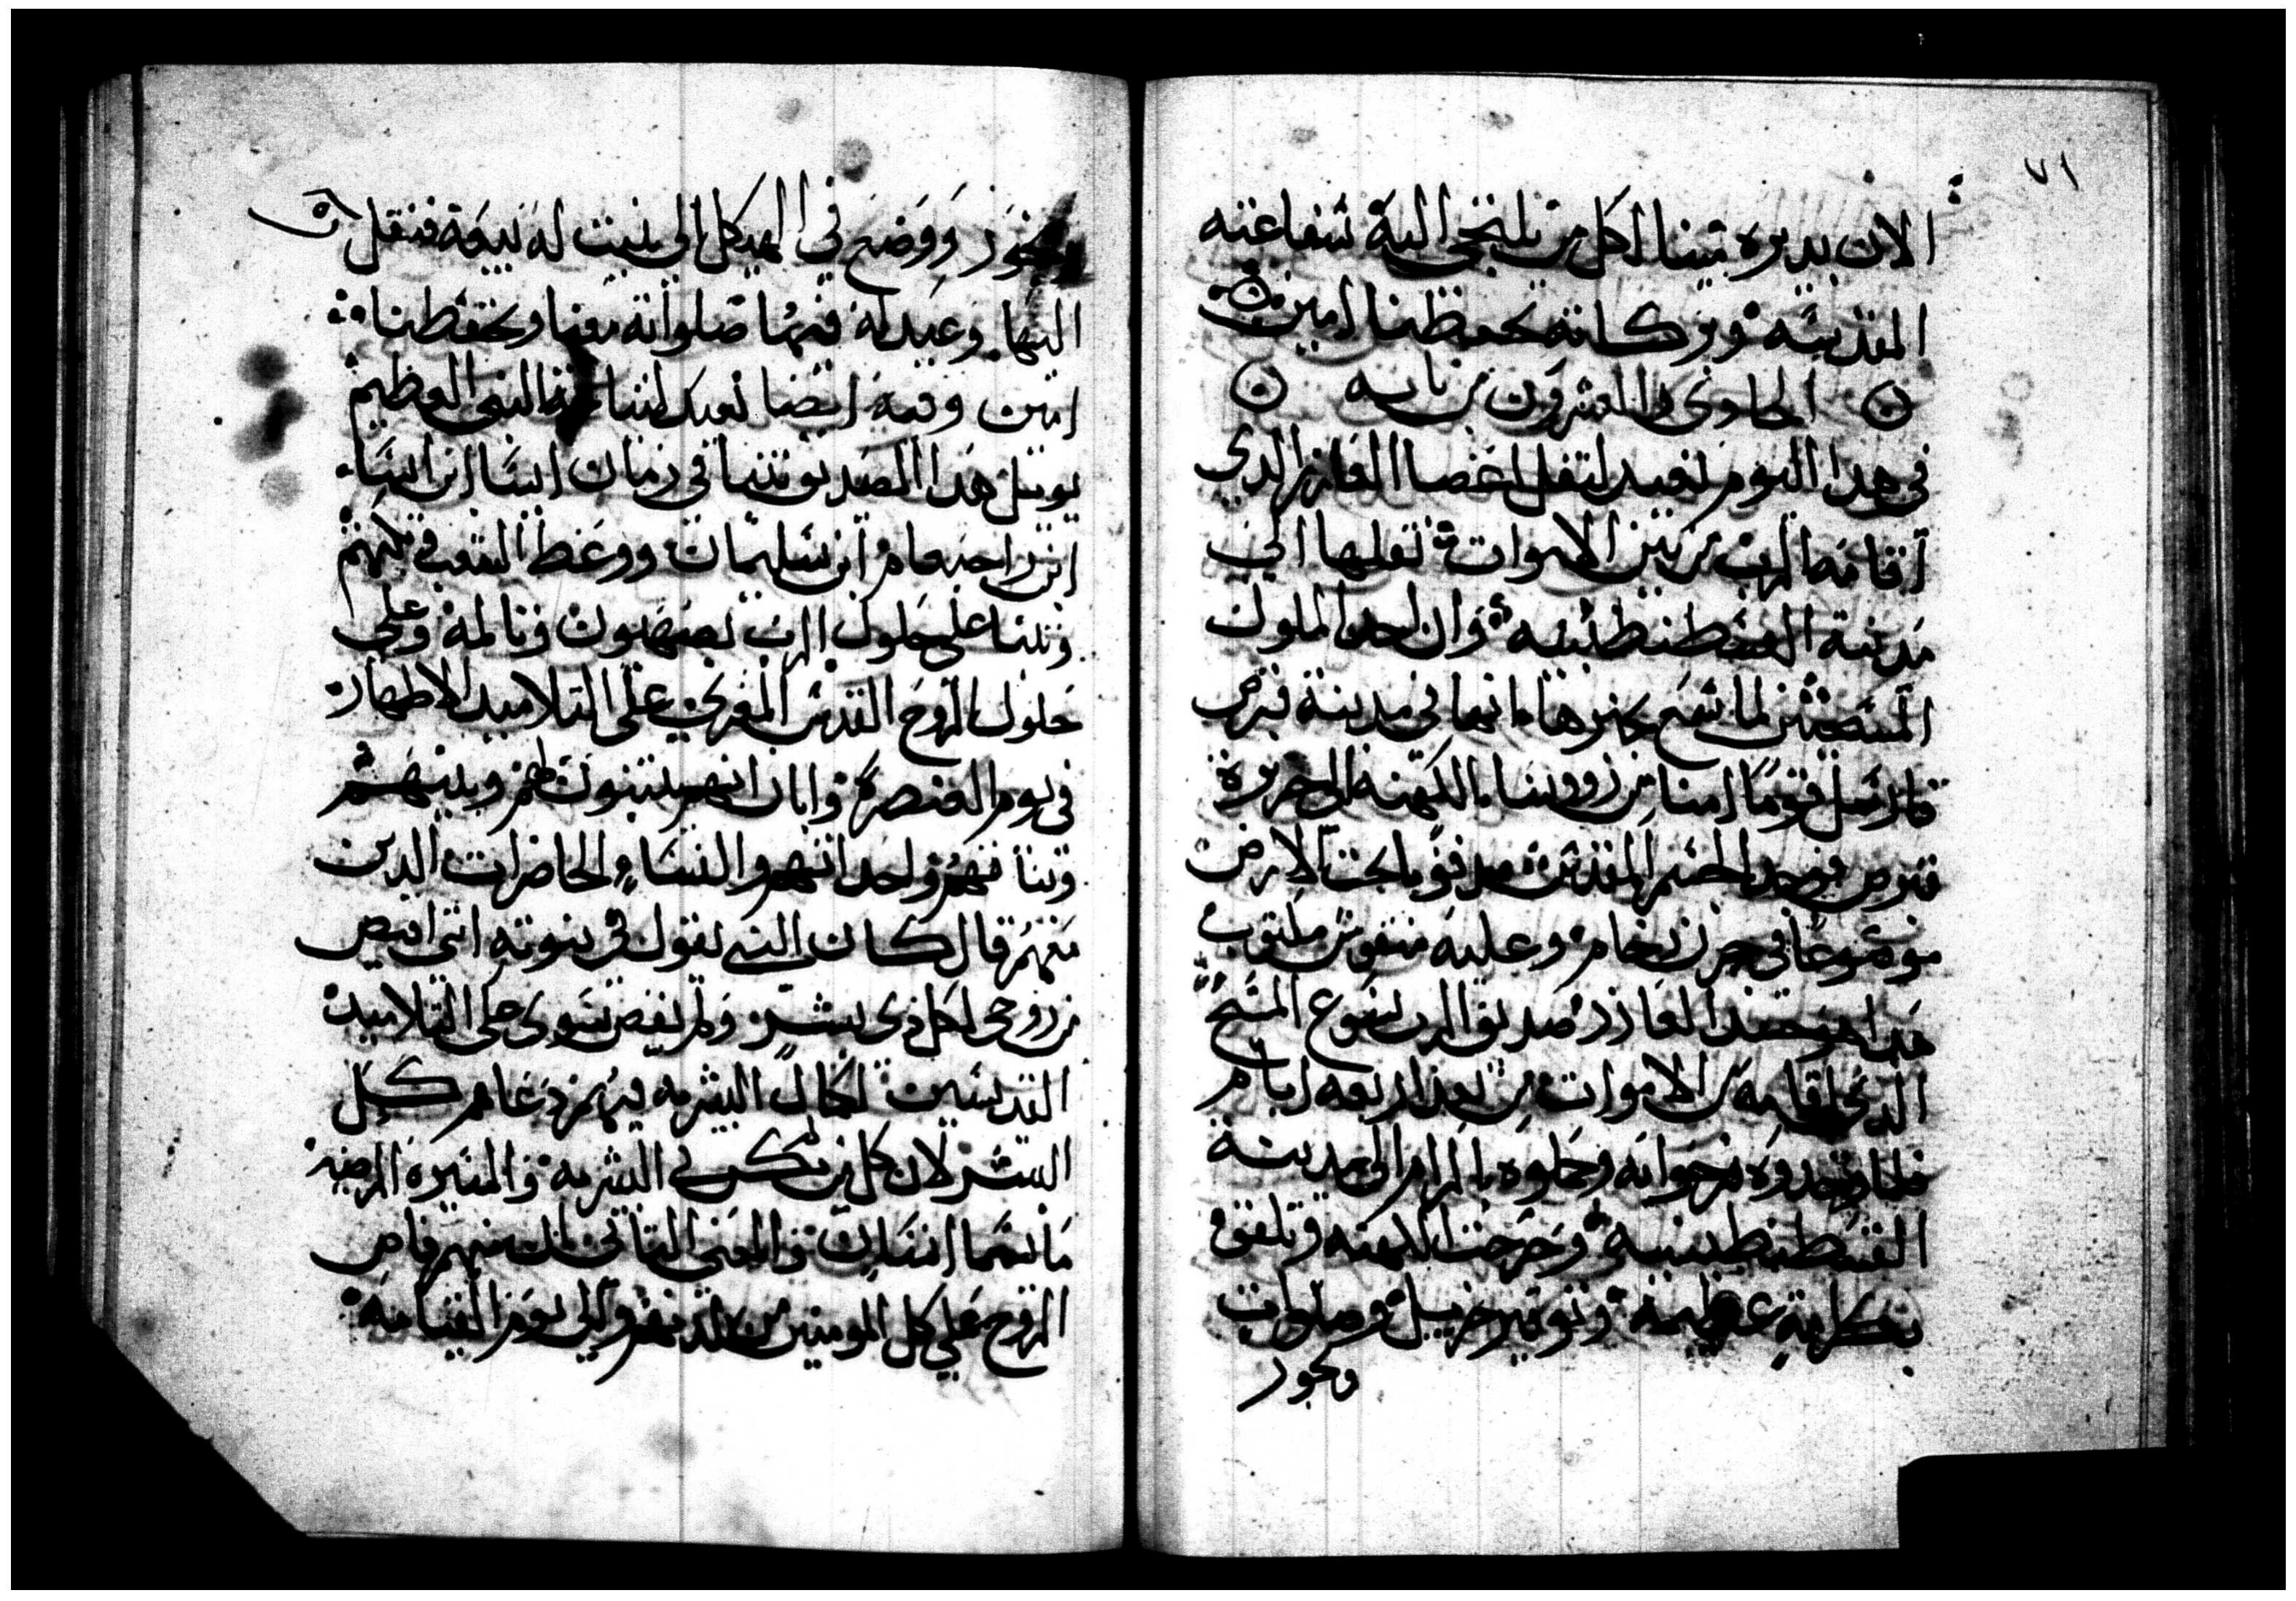 ٧١
الان بديره تينا لكل من يلتجى اليه شفاعته
المقدسه وبركاته تحفظنا امين
الحادى والعشرون من بابه
فى هدا اليوم نعيد لنقل اعضا العازر الدى
اقامه الرب من بين الاموات نقلها الى
مدينة القسطنطينيه وان احد الملوك
المسيحيين لما سمع بخبرها انها فى مدينة قبرص
فارسل قوما امنا من رووسا الكهنه الى جزيرة
قبرص فوجد الجسم المقدس مدفونا تحت الارض
موضوعا فى جرن رخام وعليه منقوش مكتوب
هدا هو جسد العازر صديق الرب يسوع المسيح
الدى اقامه من الاموات من بعد اربعه ايام
فلما وجدوه فرحوا به وحملوه بالاكرام الى مدينة
القسطنطينيه وخرجت الكهنه وتلقوه
بكرامةٍ عظيمة وتوقير جزيل وصلوات
وبخور
وبخور ووضع فى الهيكل الى بنيت له بيعة فنقل
اليها وعيد له فيها صلواته معنا وتحفظنا
امين وفيه ايضا نعيد لنياحة النبى العظيم
يوئيل هدا الصديق تنبا فى زمان اسا ابن ابيا
ابن راحبعام ابن سليمان ووعظ الشعب وبكتهم
وتنبا على حلول الرب بصهيون وتالمه وعلى
حلول الروح القدس المعزى على التلاميد الاطهار
فى يوم العنصرة وابان انهم يتنبون هم وبنيهم
وبناتهم واحدانهم والنساء الحاضرات الدين
معهم قال كان الله يقول فى نبوته انى افيض
من روحى لكل دى بشر ولم يفض سوى على التلاميد
القديسين لكمال البشريه فيهم دعاهم كل
البشر لان كل من تكن فى البشريه والسيرة المرضيه
ما يسما انسان والمعنى الثانى ان منهم فاض
الروح على كل المومنين من بعدهم والى يوم القيامه